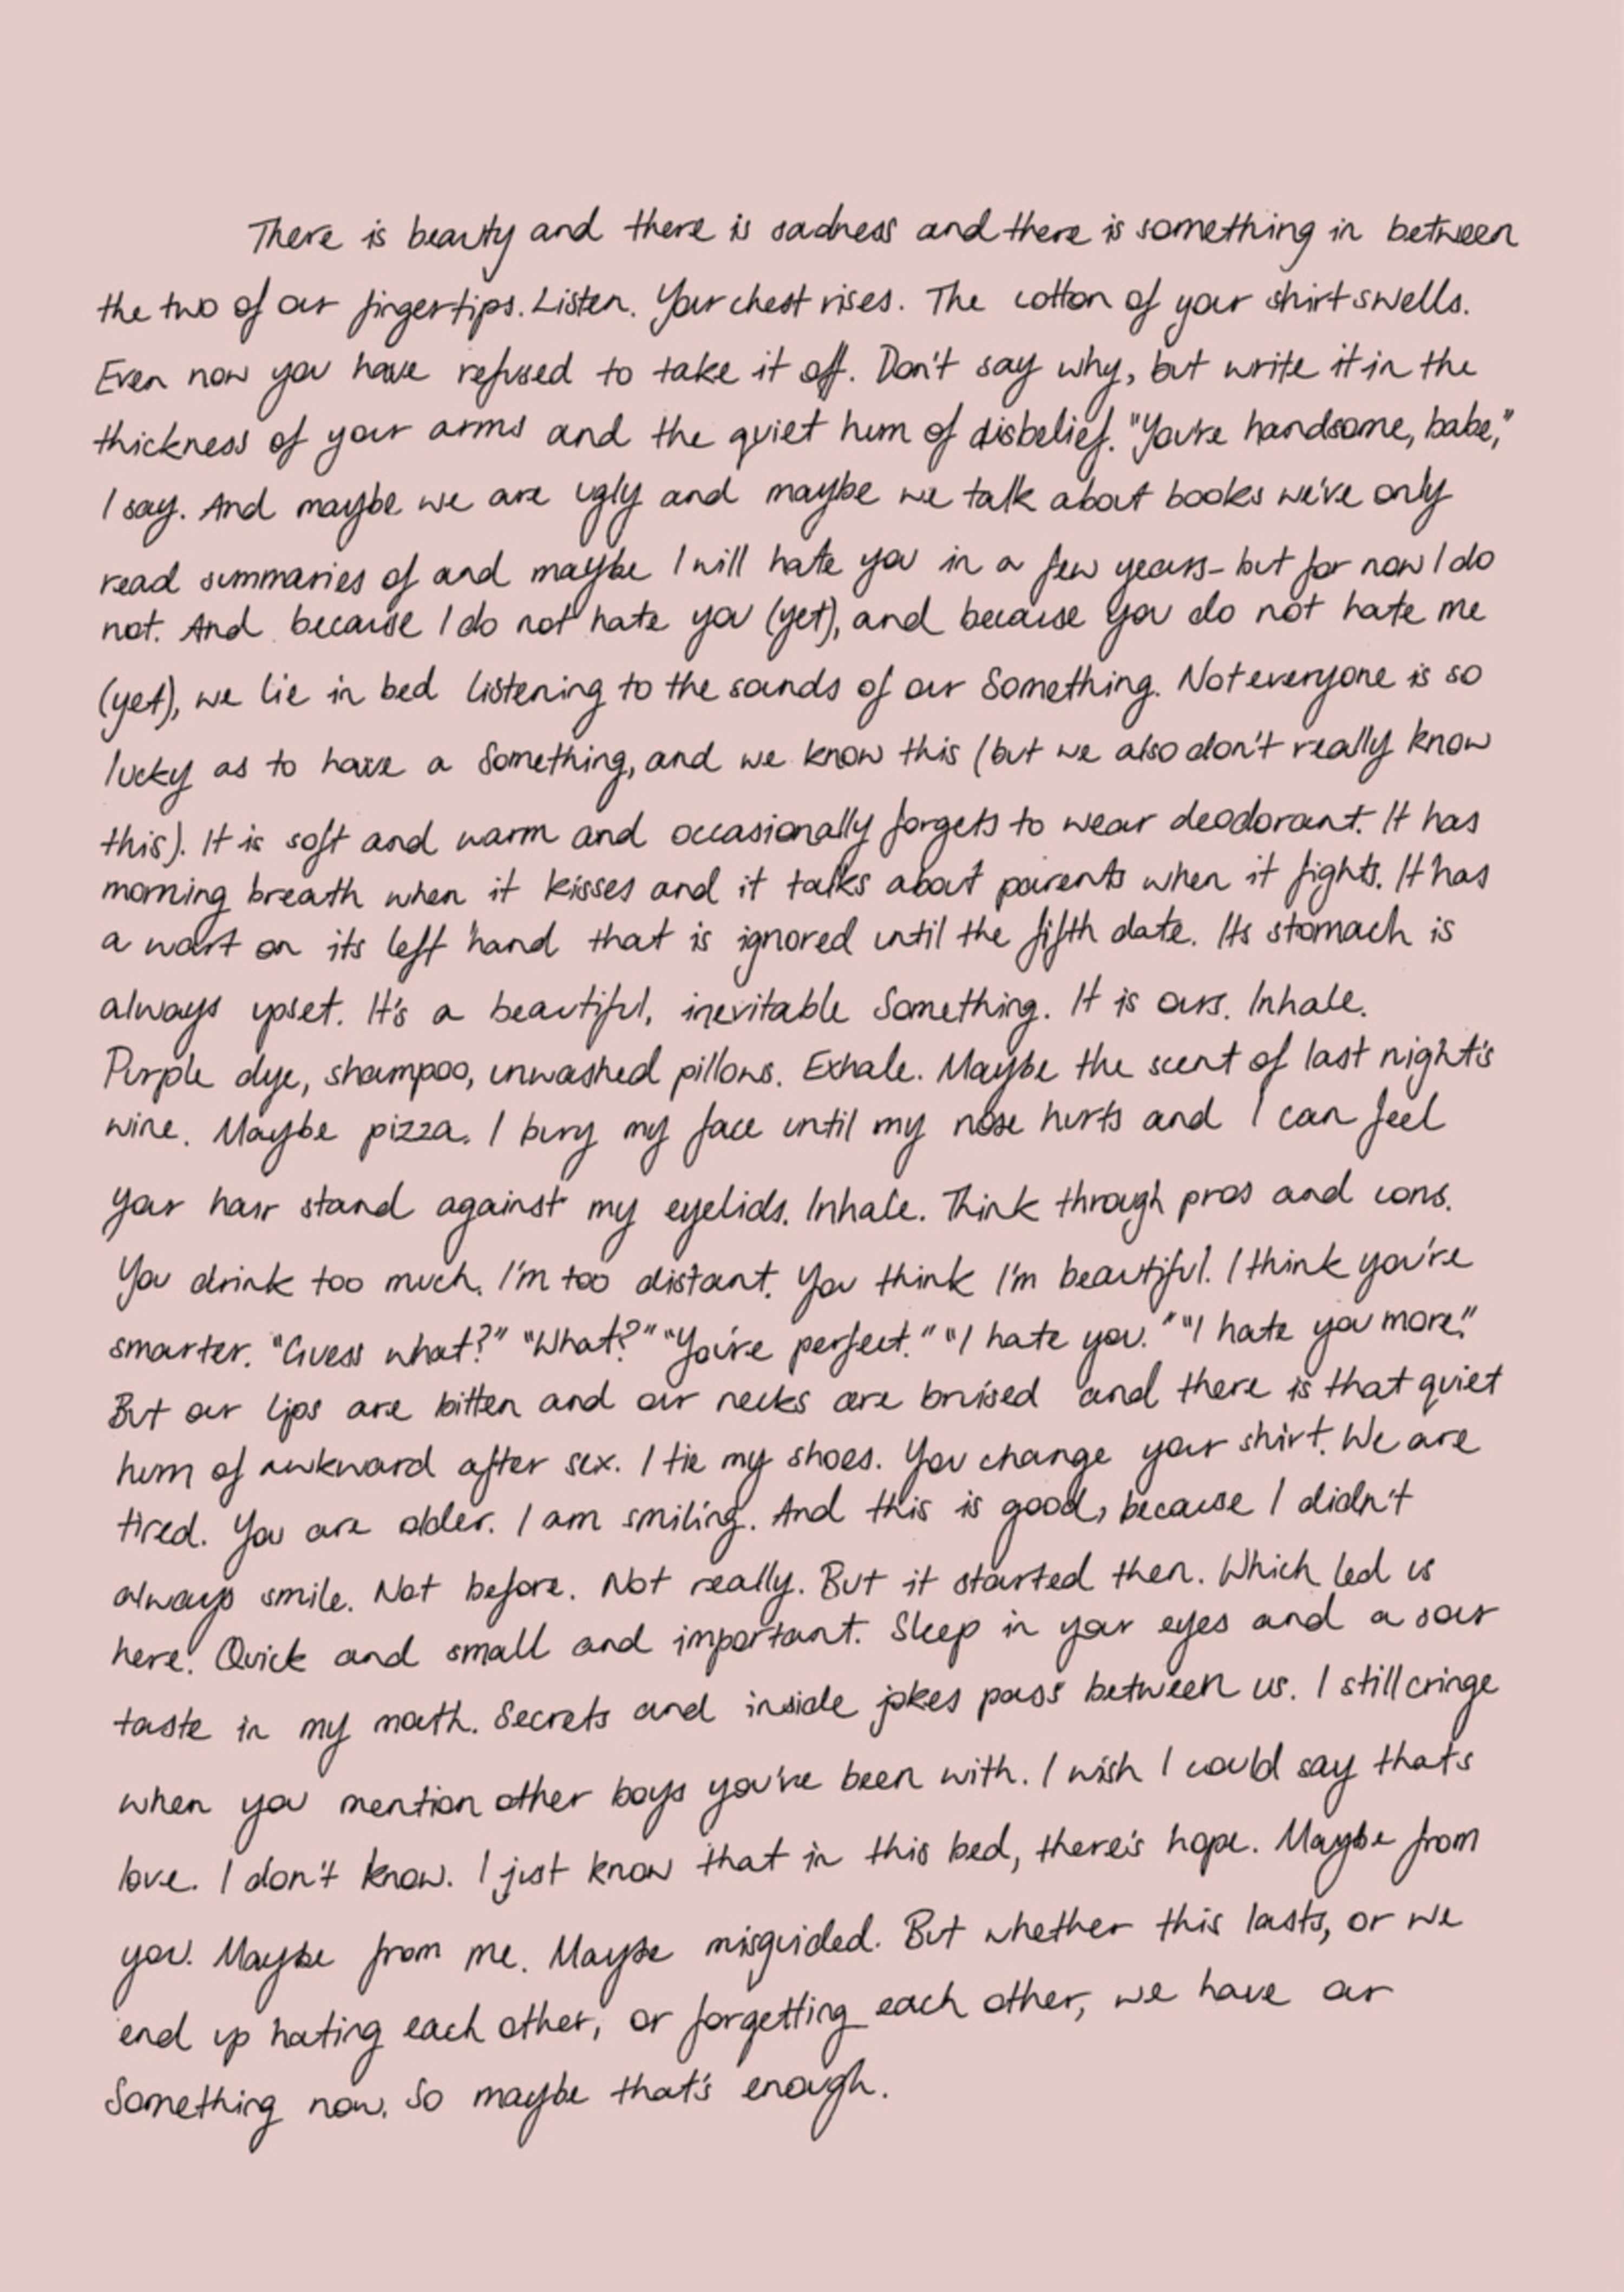 There is beauty and there is sadness and there is something in between
the two of our fingertips. Listen. Your chest rises. The cotton of your shirt swells.
Even now you have refused to take it off. Don't say why, but write it in the
thickness of your arms and the quiet hum of disbelief. "You're handsome, babe,"
I say. And maybe we are ugly and maybe we talk about books we've only
read summaries of and maybe I will hate you in a few years- but for now I do
not. And because I do not hate you (yet), and because you do not hate me
(yet), we lie in bed listening to the sounds of our Something. Not everyone is so
lucky as to have a Something, and we know this (but we also don't really know
this). It is soft and warm and occasionally forgets to wear deodorant. It has
morning breath when it kisses and it talks about parents when it fights. It has
a wart on its left hand that is ignored until the fifth date. Its stomach is
always upset. It's a beautiful, inevitable Something. It is ours. Inhale.
Purple dye, shampoo, unwashed pillows. Exhale. Maybe the scent of last night's
wine. Maybe pizza. I bury my face until my nose hurts and I can feel
your hair stand against my eyelids. Inhale. Think through pros and cons.
You drink too much. I'm too distant. You think I'm beautiful. I think you're
smarter. "Guess what?" "What?" "You're perfect." "I hate you." "I hate you more."
But our lips are bitten and our necks are bruised and there is that quiet
hum of awkward after sex. I tie my shoes. You change your shirt. We are
tired. You are older. I am smiling. And this is good, because I didn't
always smile. Not before. Not really. But it started then. Which led us
here. Quick and small and important. Sleep in your eyes and a sour
taste in my mouth. Secrets and inside jokes pass between us. I still cringe
when you mention other boys you've been with. I wish I could say that's
love. I don't know. I just know that in this bed, there's hope. Maybe from
you. Maybe from me. Maybe misguided. But whether this lasts, or we
end up hating each other, or forgetting each other, we have our
Something now. So maybe that's enough.